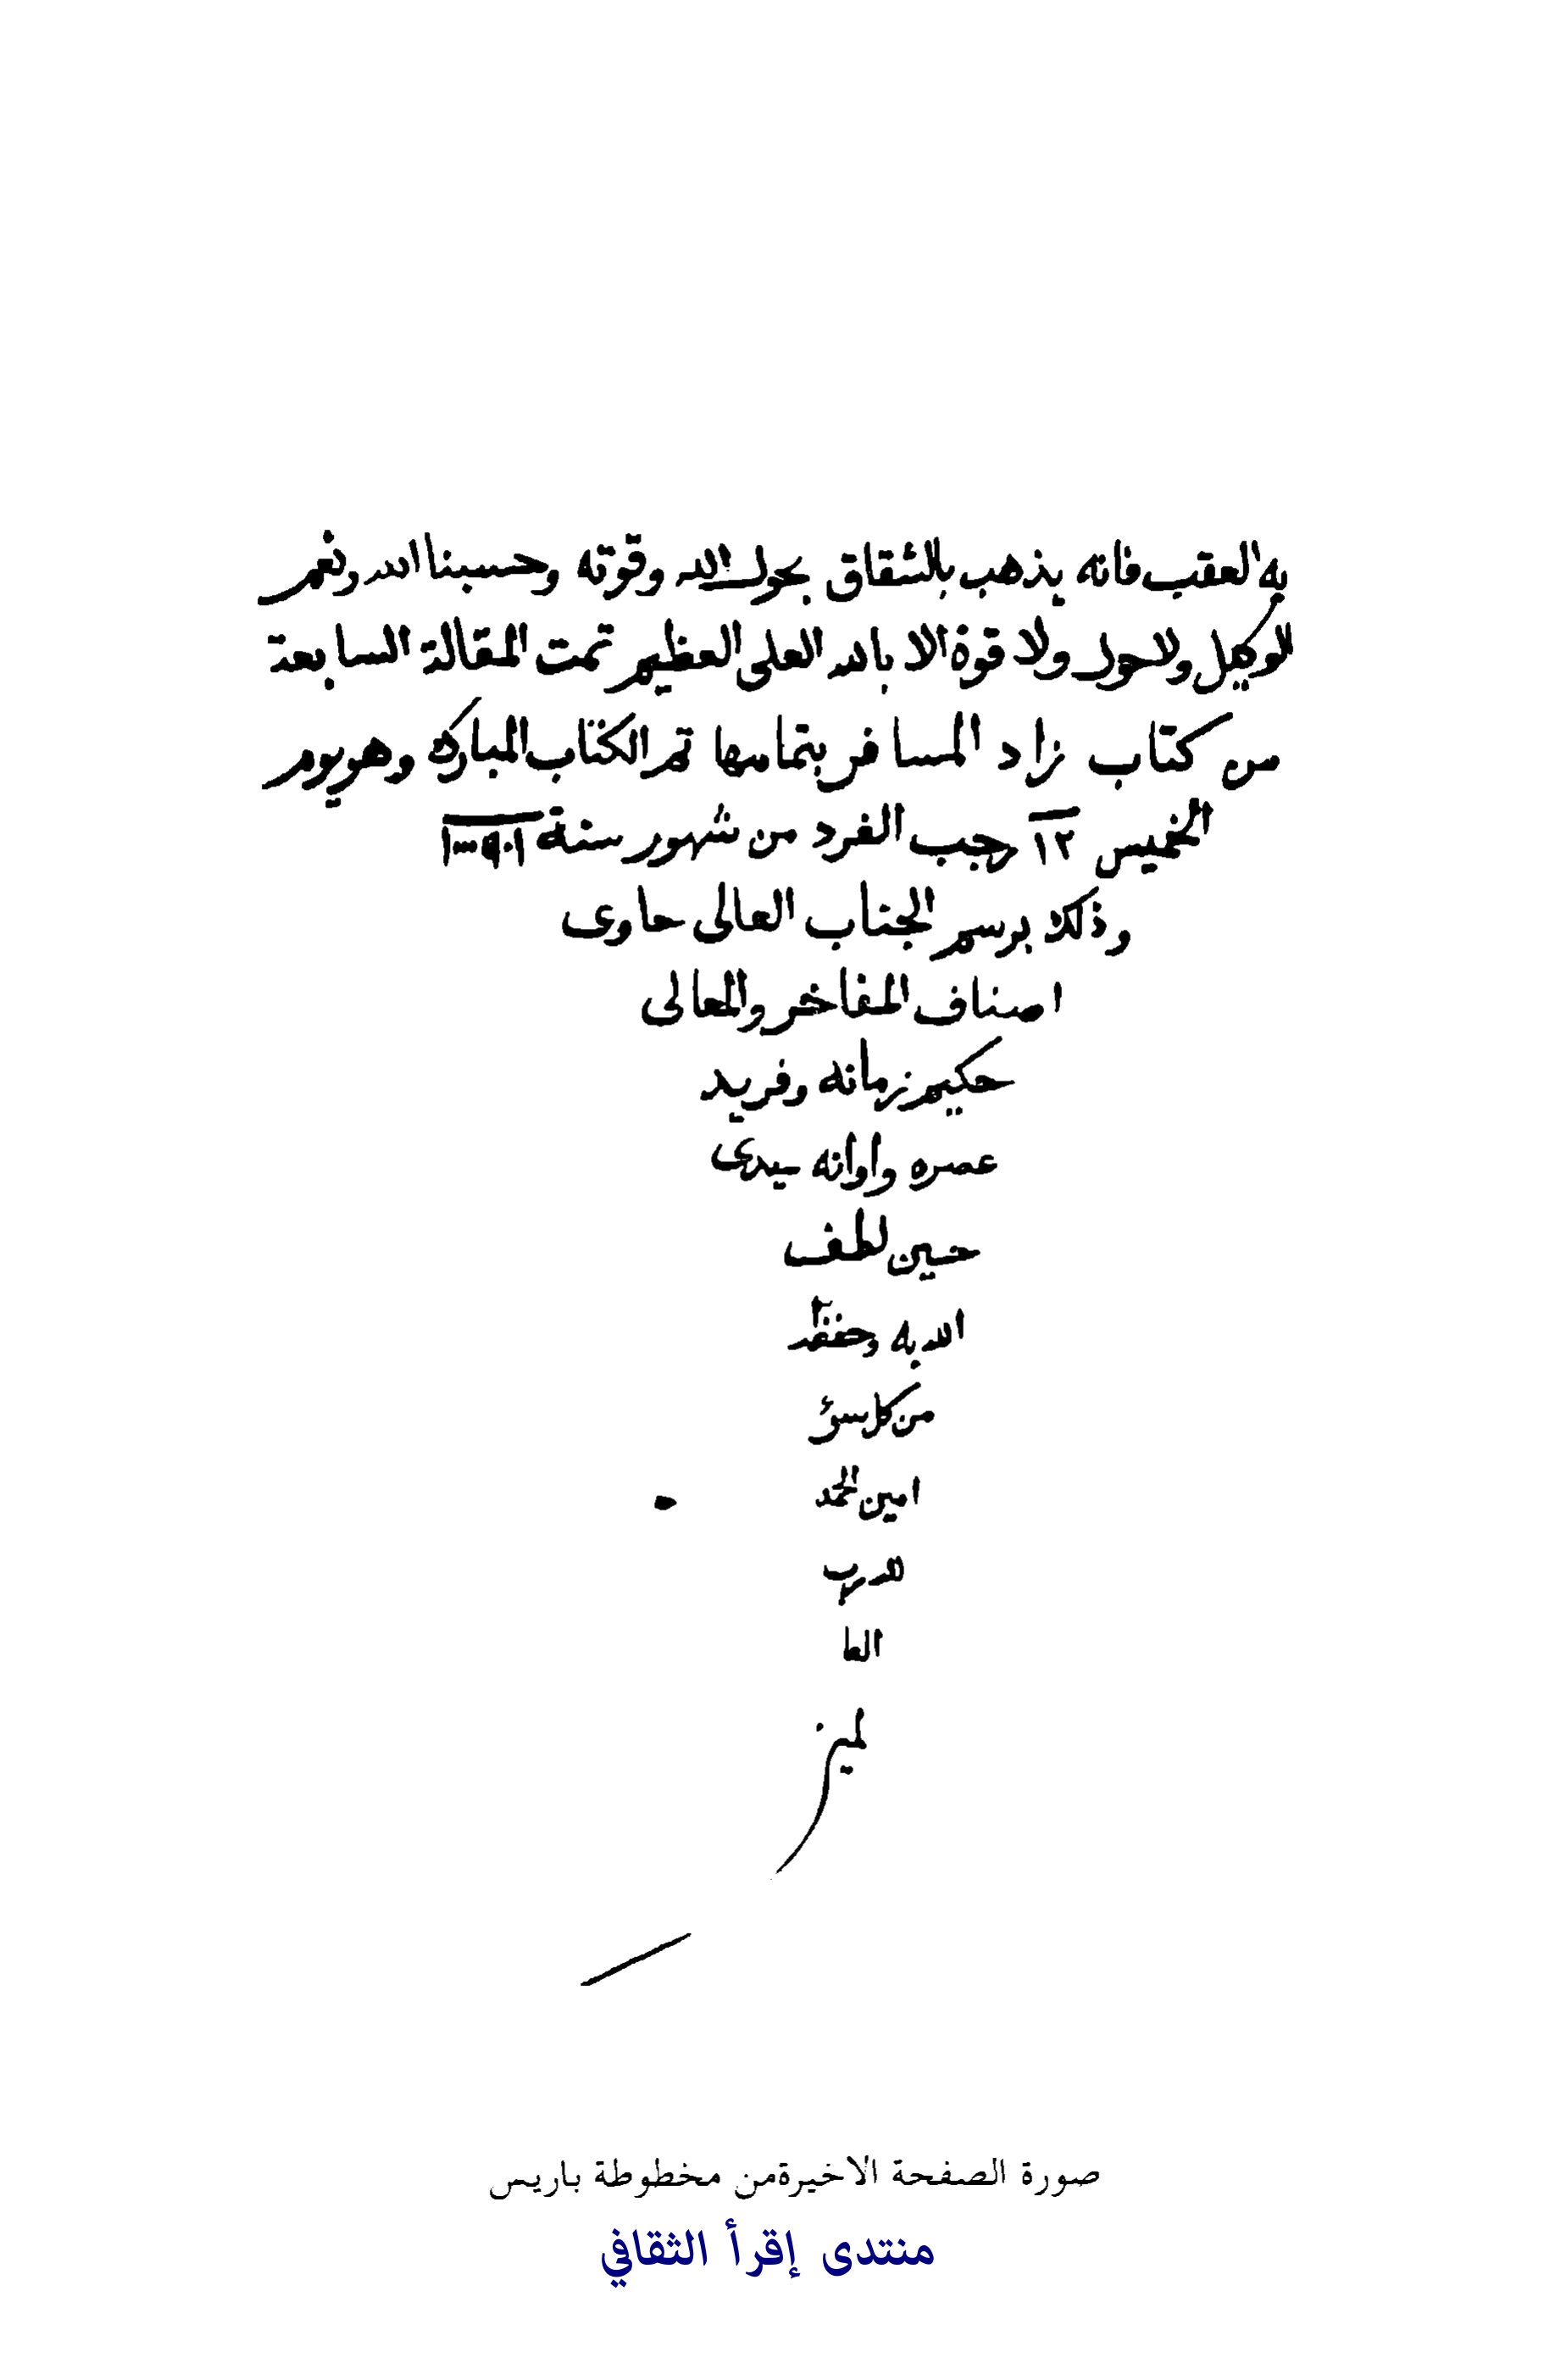 به العقب فانه يذهب بالشقاق بحول الله وقوته وحسبنا الله ونعم
الوكيل ولا حول ولا قوة الا بالله العلى العظيم تمت المقالة السابعة
من كتاب زاد المسافر بتمامها تم الكتاب المبارك وهو يوم
الخميس ١٢ رجب الفرد من شهور سنة
وذلك برسم الجناب العالى حاوى
اصناف المفاخر والمعالى
حكيم زمانه وفريد
عصره واوانه سيدى
حسين لطف
الله به وحفظه
من كل سوؤ
امين الحمد
لله رب
العا
لمين
صورة الصفحة الاخيرة من مخطوطة باريس
منتدى إقرأ الثقافي